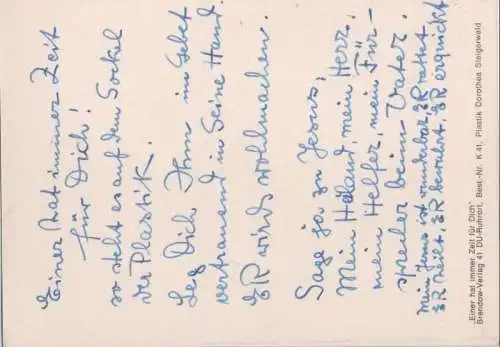 Einer hat immer Zeit
für Dich!
so steht es auf dem Sockel
der Plastik.
Leg Dich Ihm im Gebet
vertrauend in Seine Hand.
ER wird's wohlmachen.
Sage ja zu Jesus,
Mein Heiland, mein Herr,
mein Helfer, mein Für-
sprecher beim Vater.
Mein Jesus ist wunderbar, ER rettet
ER heilt, ER bewahrt, ER erquickt
„Einer hat immer Zeit für Dich"
Brendow-Verlag 41 DU-Ruhrort, Best.-Nr. K 41, Plastik Dorothea Steigerwald